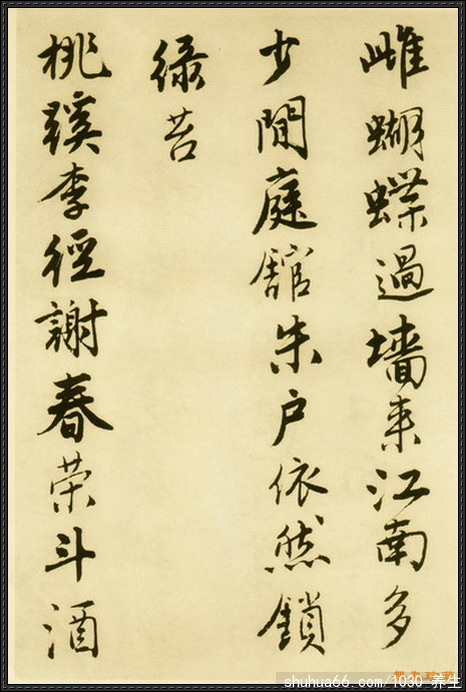 雌蝴蝶過墻来江南多
少間庭舘朱户依然鎖
緑苔
桃蹊李徑謝春荣斗酒
shuhua66.com/1030 养生